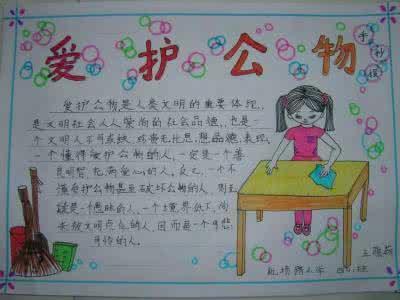 爱护公物
手抄报
爱护公物是人类文明的重要体现,
是文明社会人人崇尚的社会品德,也是一
个文明人不可或缺,珍贵无比思想品德,表现,
一个懂得爱护公物的人,一定是一个善
良明智,充满爱心的人,反之,一个不
懂爱护公物甚至破坏公物的人,则无
疑是一个愚昧的人,一个境界低下,尚
未被文明点化的人,因而是一个可悲
可怜的人.
路小学